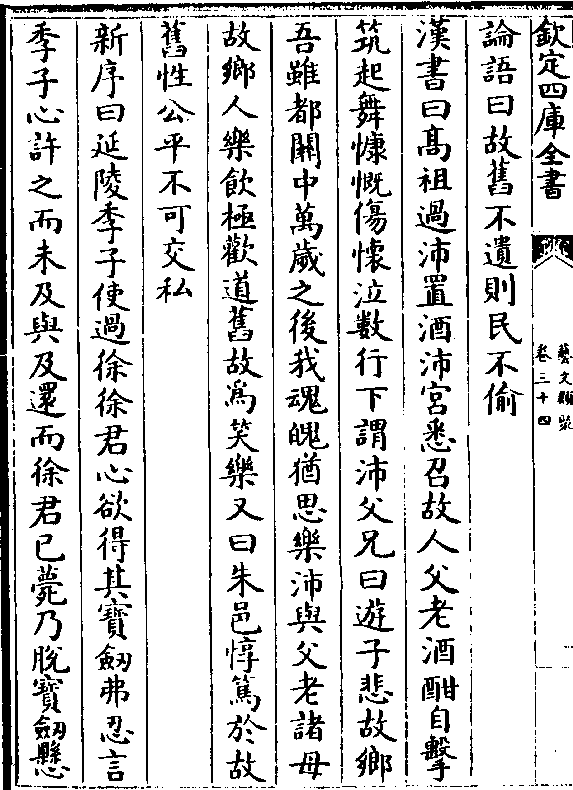 欽定四庫全書
藝文類聚
卷三十四
論語曰故舊不遺則民不偷
漢書曰髙祖過沛置酒沛宮悉召故人父老酒酣自擊
筑起舞慷慨傷懷泣数行下謂沛父兄曰遊子悲故鄉
吾雖都闗中萬歲之後我魂魄猶思樂沛與父老諸母
故鄉人樂飲極歡道舊故為笑樂又曰朱邑惇篤於故
舊性公平不可交私
新序曰延陵季子使過徐徐君心欲得其寶劒弗忍言
季子心許之而未及與及還而徐君已薨乃脫寶劒懸